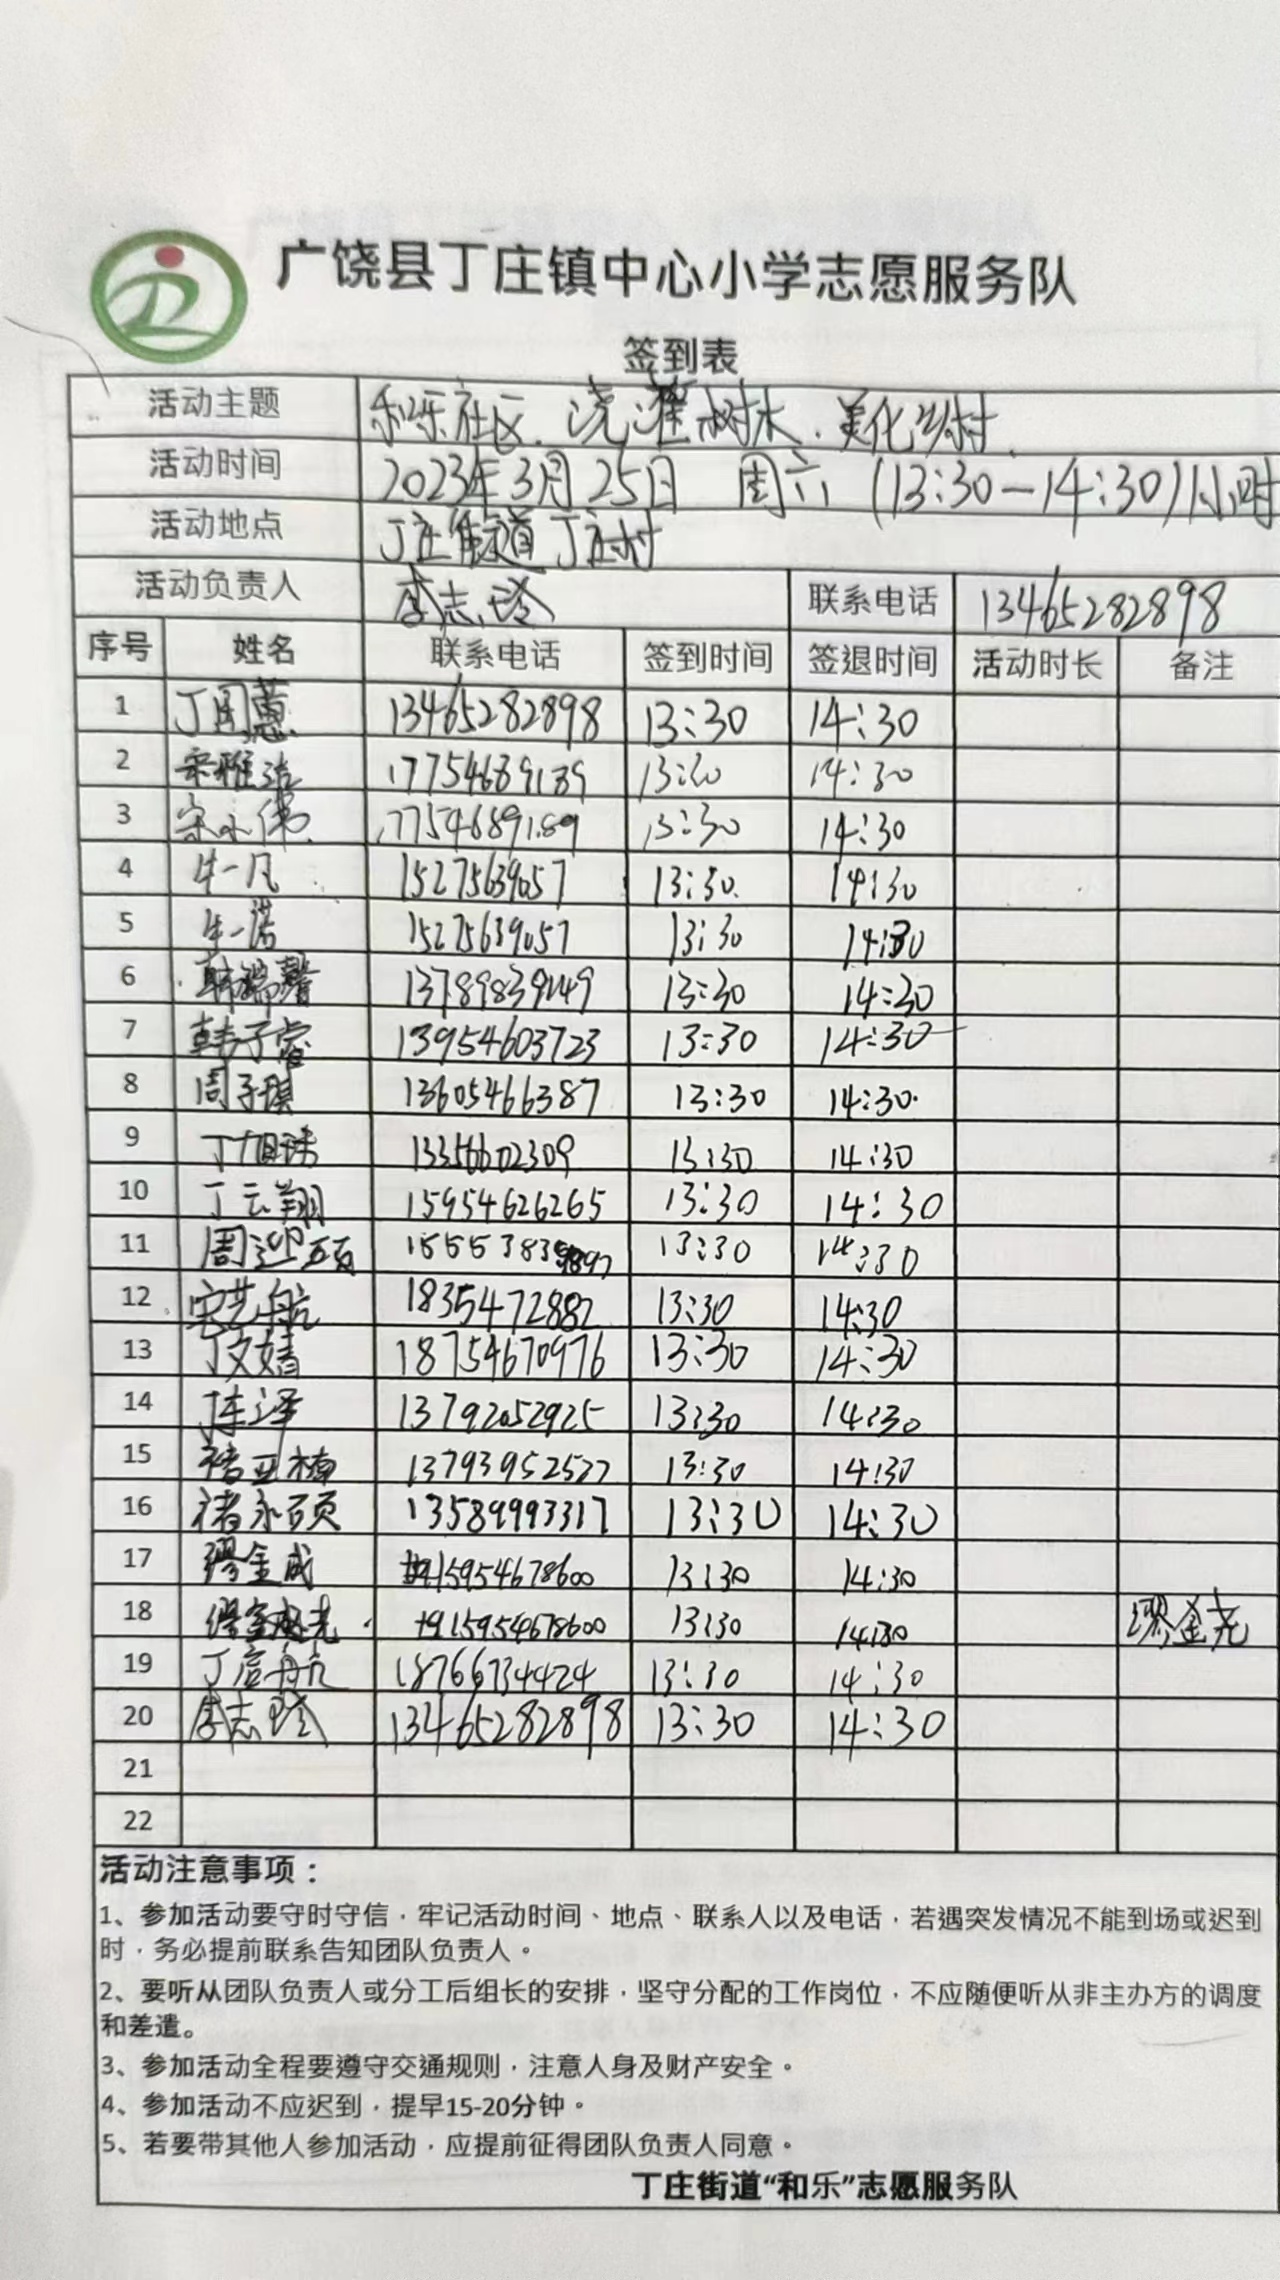 广饶县丁庄镇中心小学志愿服务队
签到表
活动主题 和乐社区、浇灌树木、美化乡村
活动时间 2023年3月25日 周六 (13:30-14:30)1小时
活动地点 丁庄街道丁庄村
活动负责人 李志玲 联系电话 13465282898
序号 姓名 联系电话 签到时间 签退时间 活动时长 备注
1 13465282898 13:30 14:30
2 17754689189 13:30 14:30
3 宋小伟 17754689189 13:30 14:30
4 牛一凡 15275639057 13:30 14:30
5 牛一诺 15275639057 13:30 14:30
6 韩瑞馨 13789839249 13:30 14:30
7 韩子睿 13954603723 13:30 14:30
8 周子琪 13605466387 13:30 14:30
9 13356602309 13:30 14:30
10 丁云翔 15954626265 13:30 14:30
11 13:30 14:30
12 18354472882 13:30 14:30
13 丁文婧 18754670976 13:30 14:30
14 13792052925 13:30 14:30
15 褚亚楠 13793952527 13:30 14:30
16 褚永硕 13589993317 13:30 14:30
17 缪金成 15954678600 13:30 14:30
18 15954678600 13:30 14:30 缪金尧
19 18766734424 13:30 14:30
20 李志玲 13465282898 13:30 14:30
21
22
活动注意事项：
1、参加活动要守时守信，牢记活动时间、地点、联系人以及电话，若遇突发情况不能到场或迟到
时，务必提前联系告知团队负责人。
2、要听从团队负责人或分工后组长的安排，坚守分配的工作岗位，不应随便听从非主办方的调度
和差遣。
3、参加活动全程要遵守交通规则，注意人身及财产安全。
4、参加活动不应迟到，提早15-20分钟。
5、若要带其他人参加活动，应提前征得团队负责人同意。
丁庄街道“和乐”志愿服务队